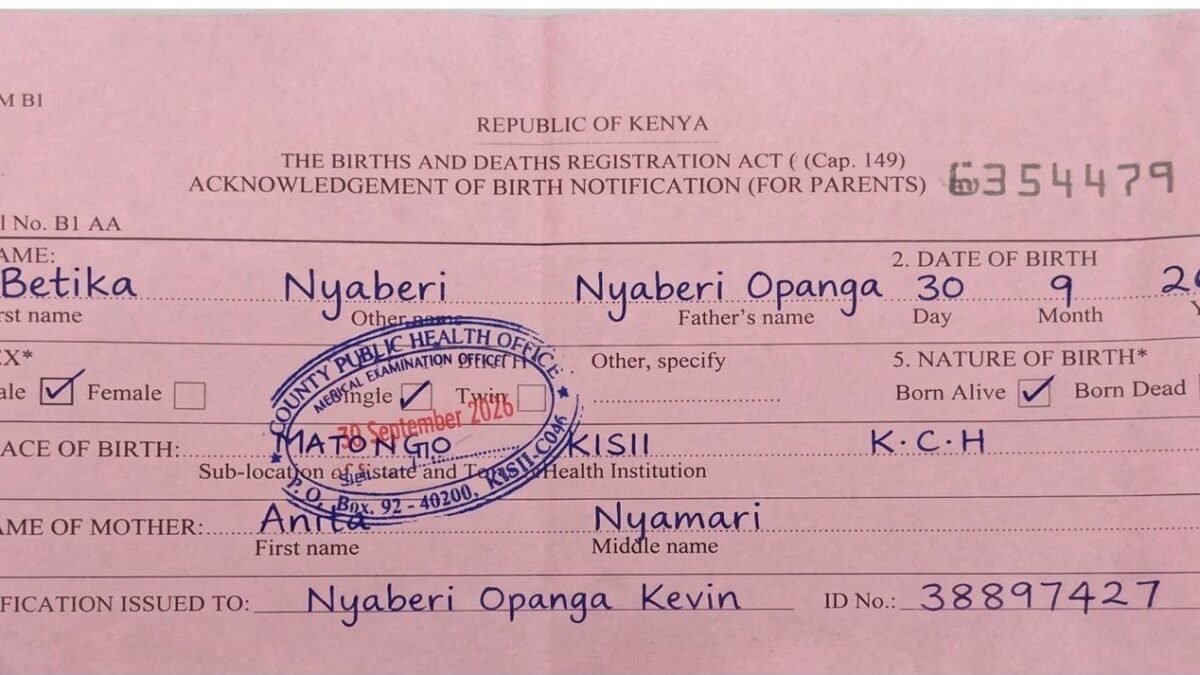 M B1
REPUBLIC OF KENYA
THE BIRTHS AND DEATHS REGISTRATION ACT ( (Cap. 149)
ACKNOWLEDGEMENT OF BIRTH NOTIFICATION (FOR PARENTS) 6354479
l No. B1 AA
AME: 2. DATE OF BIRTH
Betika Nyaberi Nyaberi Opanga 30 9 2
rst name Other name Father's name Day Month Y
EX* BIRTH Other, specify 5. NATURE OF BIRTH*
ale Female Single Twin Born Alive Born Dead
COUNTY PUBLIC HEALTH OFFICE
MEDICAL EXAMINATION OFFICER
30 September 2026
P. O. Box. 92 - 40200, KISII-C046
ACE OF BIRTH: MATONGO KISII K.C.H
Sub-location of Estate and Health Institution
AME OF MOTHER: Anita Nyamari
First name Middle name
FICATION ISSUED TO: Nyaberi Opanga Kevin ID No.: 38897427